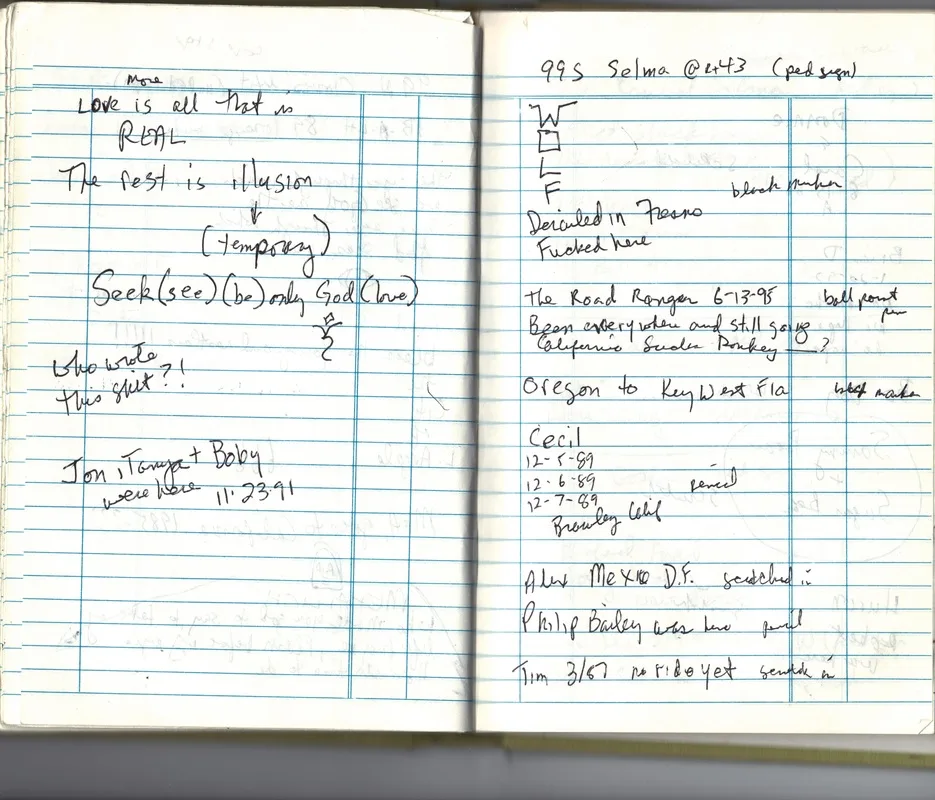 more
Love is all that is
REAL
The rest is illusion
(temporary)
Seek (see) (be) only God (love)
who wrote
this shit?!
Jon, Tanya + Boby
were here 11.23.91
99S Selma @ Rt 43 (ped sign)
W
O
L
F
black marker
Derailed in Fresno
Fucked here
The Road Ranger 6-13-95 ball point
pen
Been everywhere and still going
California Donkey ?
Oregon to Key West Fla marker
Cecil
12-5-89
12-6-89 pencil
12-7-89
Brawley Calif
Alex Mexico D.F. scratched in
Philip Bailey was here pencil
Tim 3/87 no ride yet scratch in